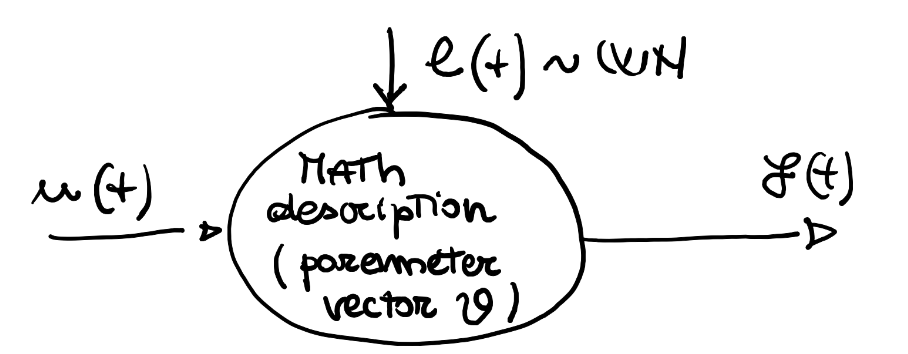 e(t) ~ WN
u(t)
MATh
description
(parameter
vector ϑ)
y(t)